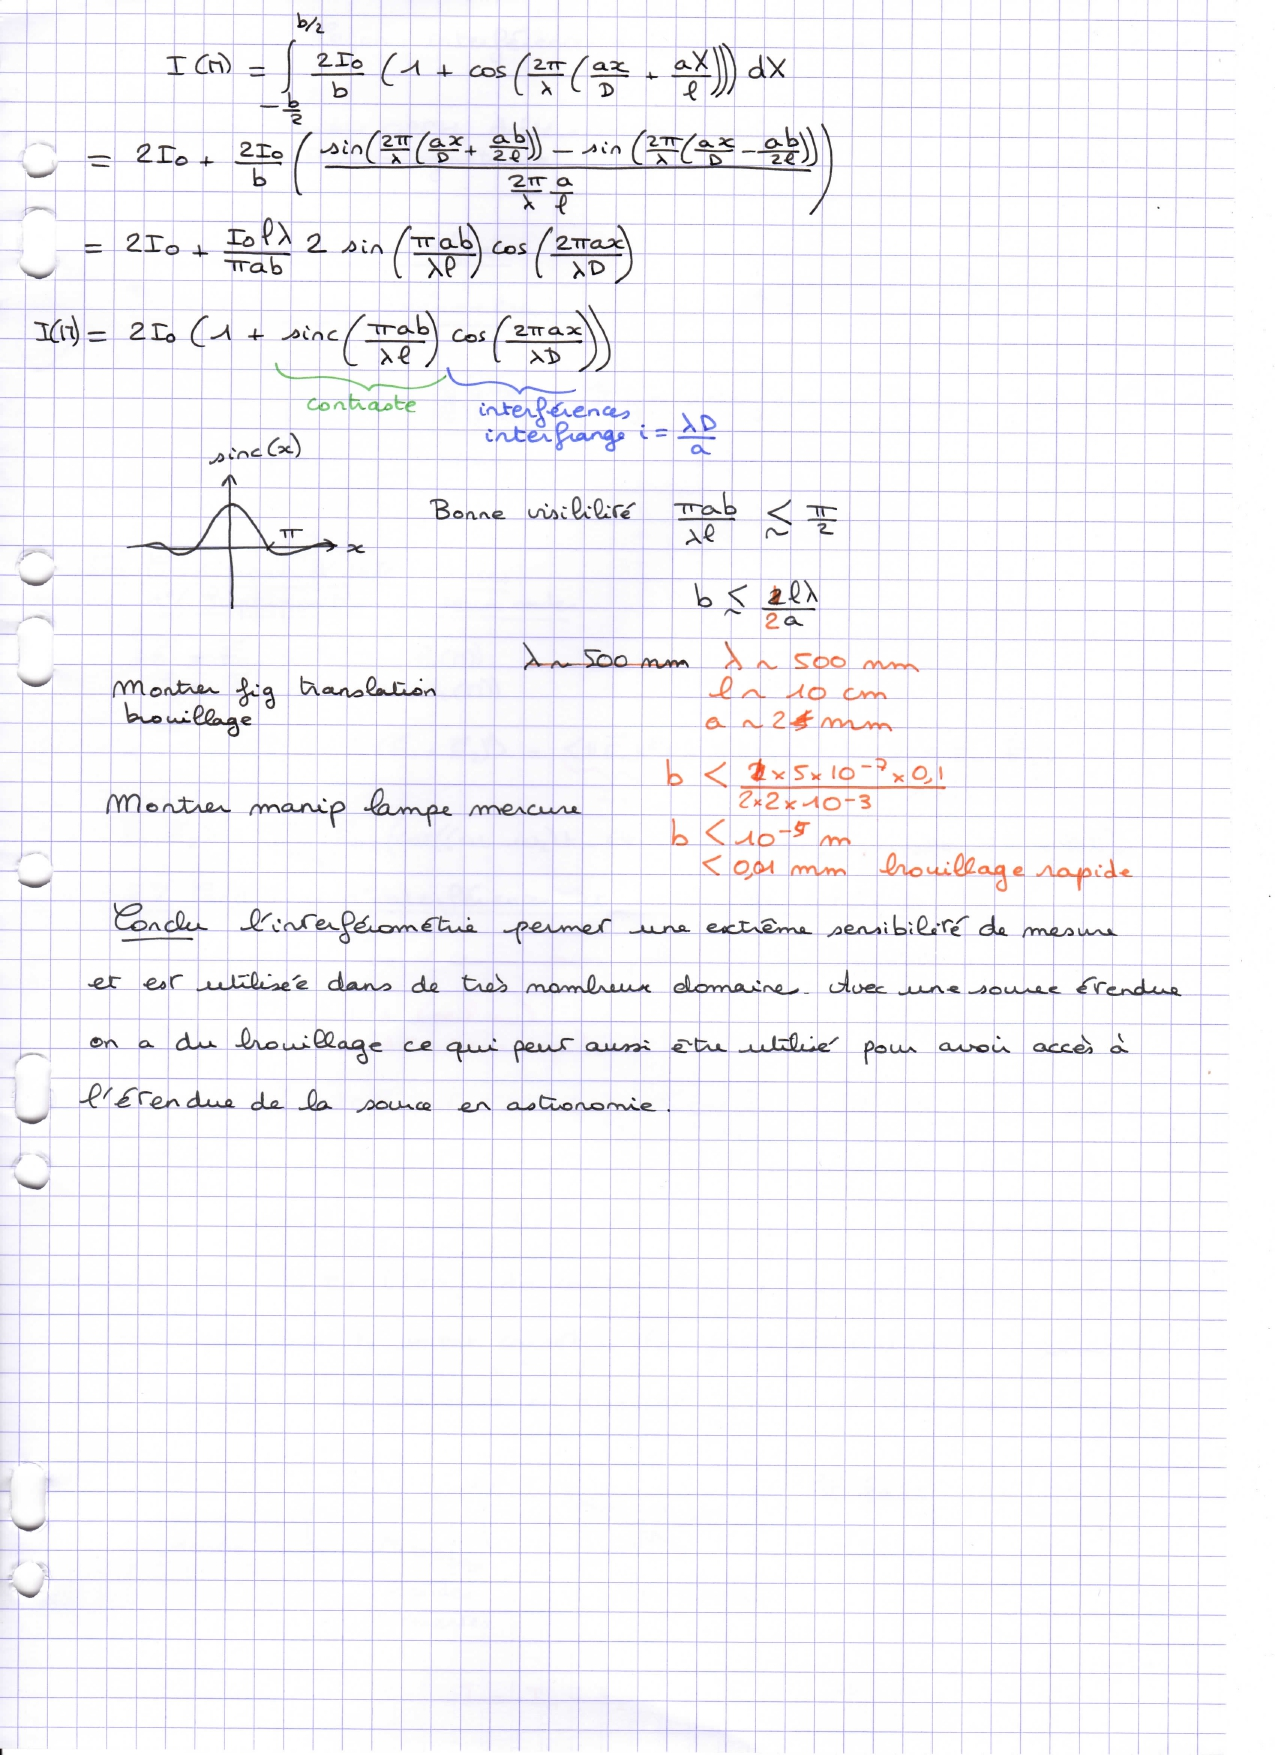 I(M) = ∫_{-b/2}^{b/2} 2I₀/b (1 + cos(2π/λ (ax/D + aX/ℓ))) dX
= 2I₀ + 2I₀/b ( (sin(2π/λ (ax/D + ab/2ℓ)) − sin(2π/λ (ax/D − ab/2ℓ))) / (2π/λ a/ℓ) )
= 2I₀ + I₀ℓλ/πab 2 sin(πab/λℓ) cos(2πax/λD)
I(M) = 2I₀ (1 + sinc(πab/λℓ) cos(2πax/λD))
contraste interférences
interfrange i = λD/a
sinc(x)
Bonne visibilité πab/λℓ ≲ π/2
π
x
b ≲ ℓλ/2a
λ ~ 500 nm λ ~ 500 nm
Montrer fig translation ℓ ~ 10 cm
brouillage a ~ 2 mm
b < 1×5×10⁻⁷×0,1 / 2×2×10⁻³
Montrer manip lampe mercure
b < 10⁻⁵ m
< 0,01 mm brouillage rapide
Conclu l'interférométrie permet une extrême sensibilité de mesure
et est utilisée dans de très nombreux domaine. Avec une source étendue
on a du brouillage ce qui peut aussi être utilisé pour avoir accès à
l'étendue de la source en astronomie.